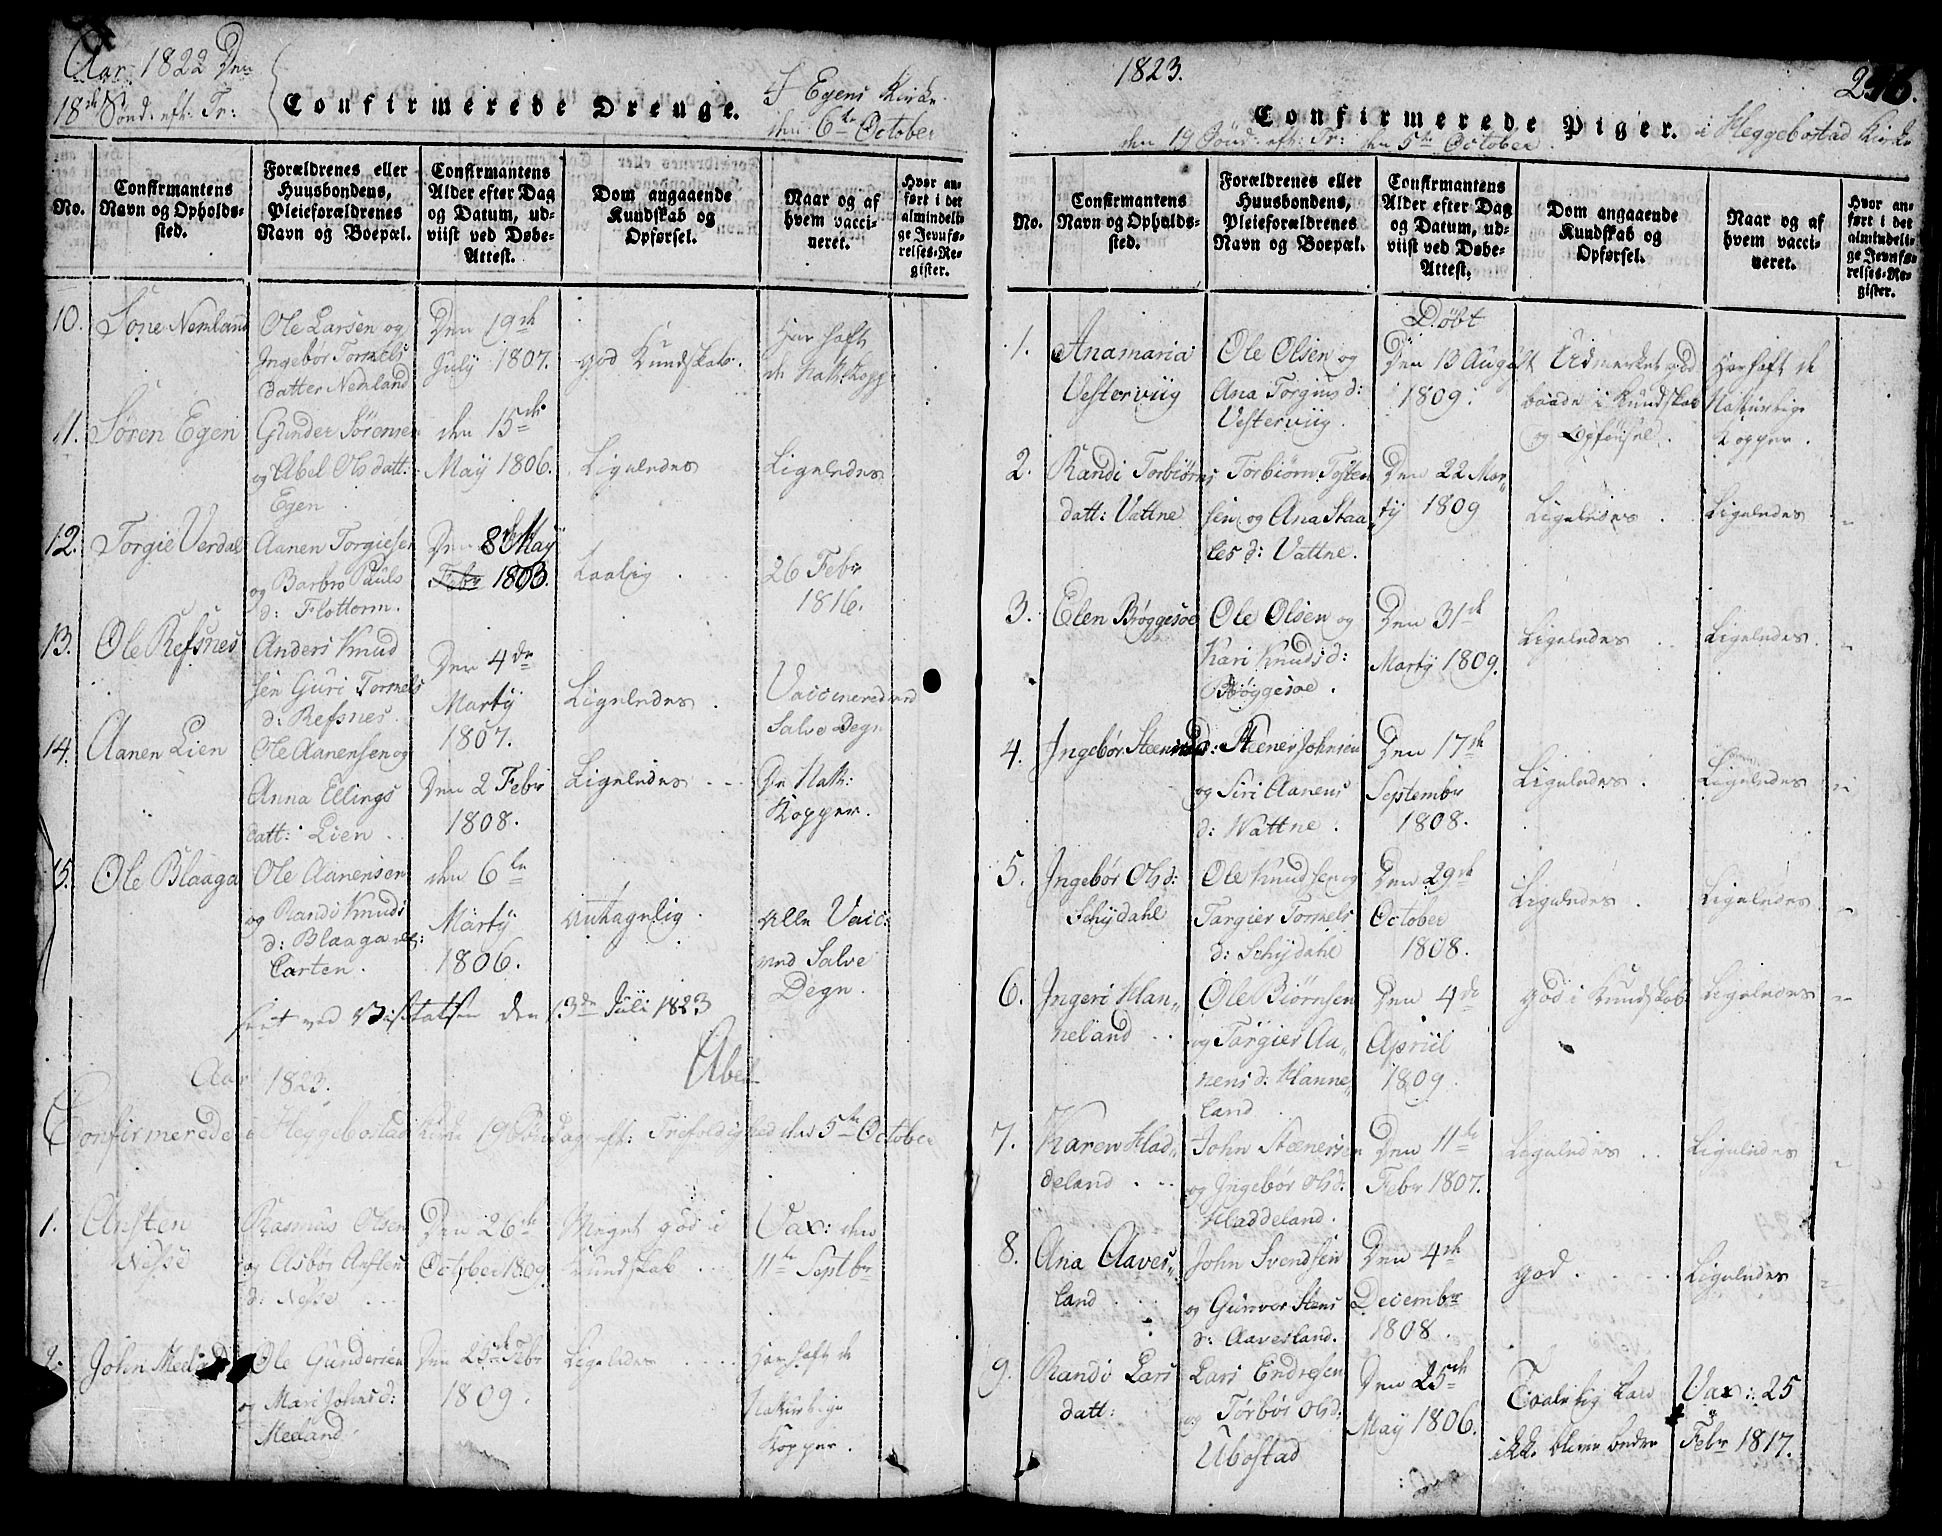 Aar 1822 Den
18de Sønd. eft. Tr:
Confirmerede Drenge.
I Egens Kirke
den 6te October
No.
Confirmantens
Navn og Opholds-
sted.
Forældrenes eller
Huusbondens,
Pleieforældrenes
Navn og Boepæl.
Confirmantens
Alder efter Dag
og Datum, ud-
viist ved Døbe-
Attest.
Dom angaaende
Kundskab og
Opførsel.
Naar og af
hvem vacci-
neret.
Hvor an-
ført i det
almindeli-
ge Jevnfø-
relses-Re-
gister.
10. Sone Nemland
Ole Larsen og
Ingebør Tormels
datter Nemland
Den 19de
July 1807.
god Kundskab.
Har haft
de Natt: Kopp:
11. Søren Egen
Gunder Sørensen
og Abel Olsdatt:
Egen
den 15de
May 1806.
Ligeledes
Ligeledes
12. Torgie Verdal
Aanen Torgiesen
og Barbro Pauls
d: Flottorm.
Den 8de May
Febr 1803.
Taalig
26 Febr
1816.
13. Ole Refsnes
Anders Knud
sen Guri Tormels
d: Refsnes.
Den 4de
Marty
1807.
Ligeledes
Vaccineret ved
Salve Degn
14. Aanen Lien
Ole Aanensen og
Anna Ellings
datt: Lien
Den 2 Febr
1808.
Ligeledes
De Natt:
Kopper.
15. Ole Blaaga
Ole Aanensen
og Randi Knuds
d: Blaaga
Carten.
den 6te
Marty
1806.
antagelig
Alle Vacc:
ved Salve
Degn.
seet ved Visitatsen den 13de Juli 1823
Aar 1823.
Confirmerede i Heggebostad Kirke 19 Søndag eft: Trefoldighed den 5te October
1. Ansten
Nesse
Rasmus Olsen
og Asbør Anstens
d: Nesse
Den 26de
October 1809
Meget god i
Kundskab
Vax: den
11te Septbr
2. John Meland
Ole Gundersen
og Mari Johnsd:
Meland.
Den 25de Febr
1809.
Ligeledes
Har haft de
Naturlige
Kopper.
1823.
Confirmerede Piger.
i Heggebostad Kirke
den 19 Sønd. eft: Tr: den 5te October.
No.
Confirmantens
Navn og Opholds-
sted.
Forældrenes eller
Huusbondens,
Pleieforældrenes
Navn og Boepæl.
Confirmantens
Alder efter Dag
og Datum, ud-
viist ved Døbe-
Attest.
Dom angaaende
Kundskab og
Opførsel.
Naar og af
hvem vacci-
neret.
Hvor an-
ført i det
almindeli-
ge Jevnfø-
relses-Re-
gister.
1. Anamaria
Vesterviig
Ole Olsen og
Ana Torgiusd:
Vesterviig.
Døbt
Den 13 August
1809.
Udmerket god
baade i Kundskab
og Opførsel.
Har haft de
Naturlige
Kopper.
2. Randi Torbiørns
datt: Vattne
Torbiørn Tosten
sen og Ana Staa
lesd: Vattne.
Den 22 Mar
ty 1809
Ligeledes
Ligeledes
3. Elen Brøggesøe
Ole Olsen og
Kari Knudsd:
Brøggesøe.
Den 31de
Marty 1809.
Ligeledes
Ligeledes
4. Ingebør Steenersd:
Steener Johnsen
og Siri Aanens
d: Wattne.
Den 17de
Septembr
1808.
Ligeledes
Ligeledes
5. Ingebør Olsd:
Schydahl
Ole Knudsen og
Targier Tormels
d: Schydahl
Den 29de
October
1808.
Ligeledes
Ligeledes
6. Ingeri Han-
neland
Ole Biørnsen
og Targier Aa-
nensd: Hanne-
land
Den 4de
Apriil
1809.
god i Kundskab
Ligeledes
7. Karen Had-
deland
John Steenersen
og Ingebør Olsd:
Haddeland.
Den 11te
Febr 1807.
Ligeledes
Ligeledes
8. Ana Aaves-
land
John Svendsen
og Gunvor Stens
d: Aavesland.
Den 4de
Decembr
1808.
god
Ligeledes
9. Randi Lars
datt:
Lars Endresen
og Tørbør Olsd:
Ubostad
Den 25de
May 1806.
Taalelig kan
ikke blive bedre
Vax: 25
Febr 1817.